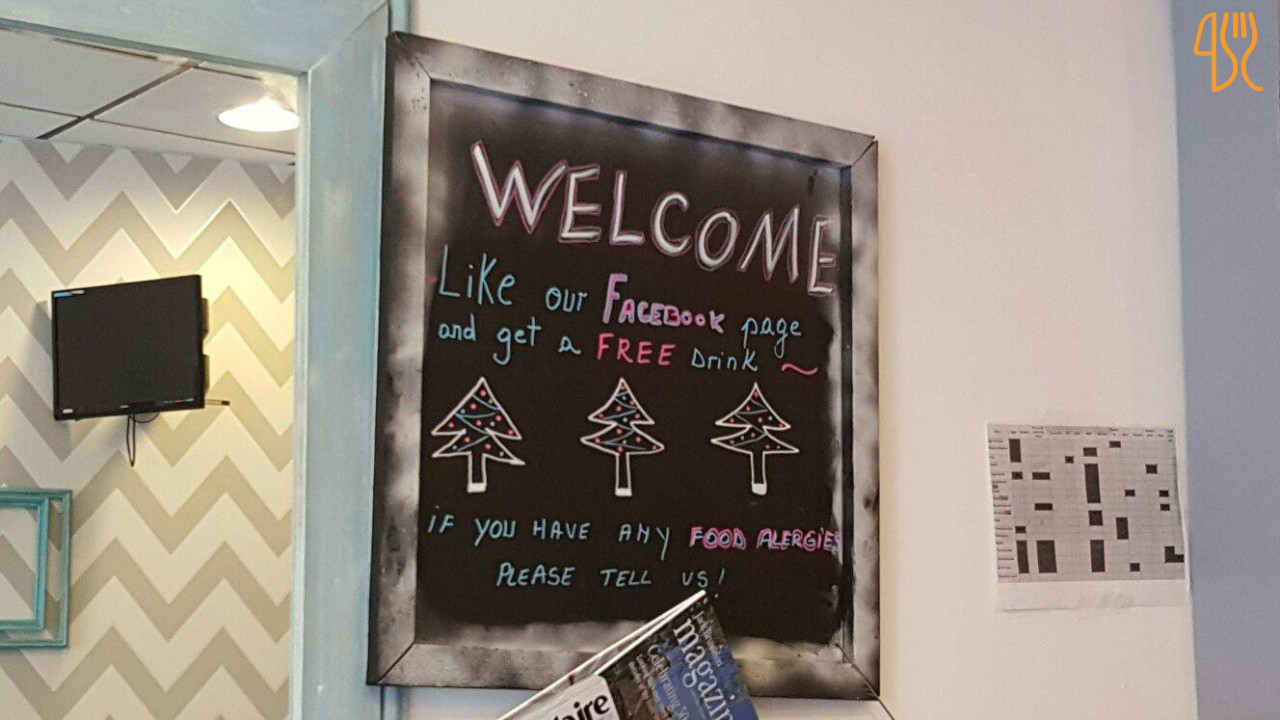 WELCOME
Like our FACEBOOK page
and get a FREE Drink ~
iF YOU HAVE ANY FOOD ALERGIES
PLEASE TELL US!
magazin
Celebrating 50
aire